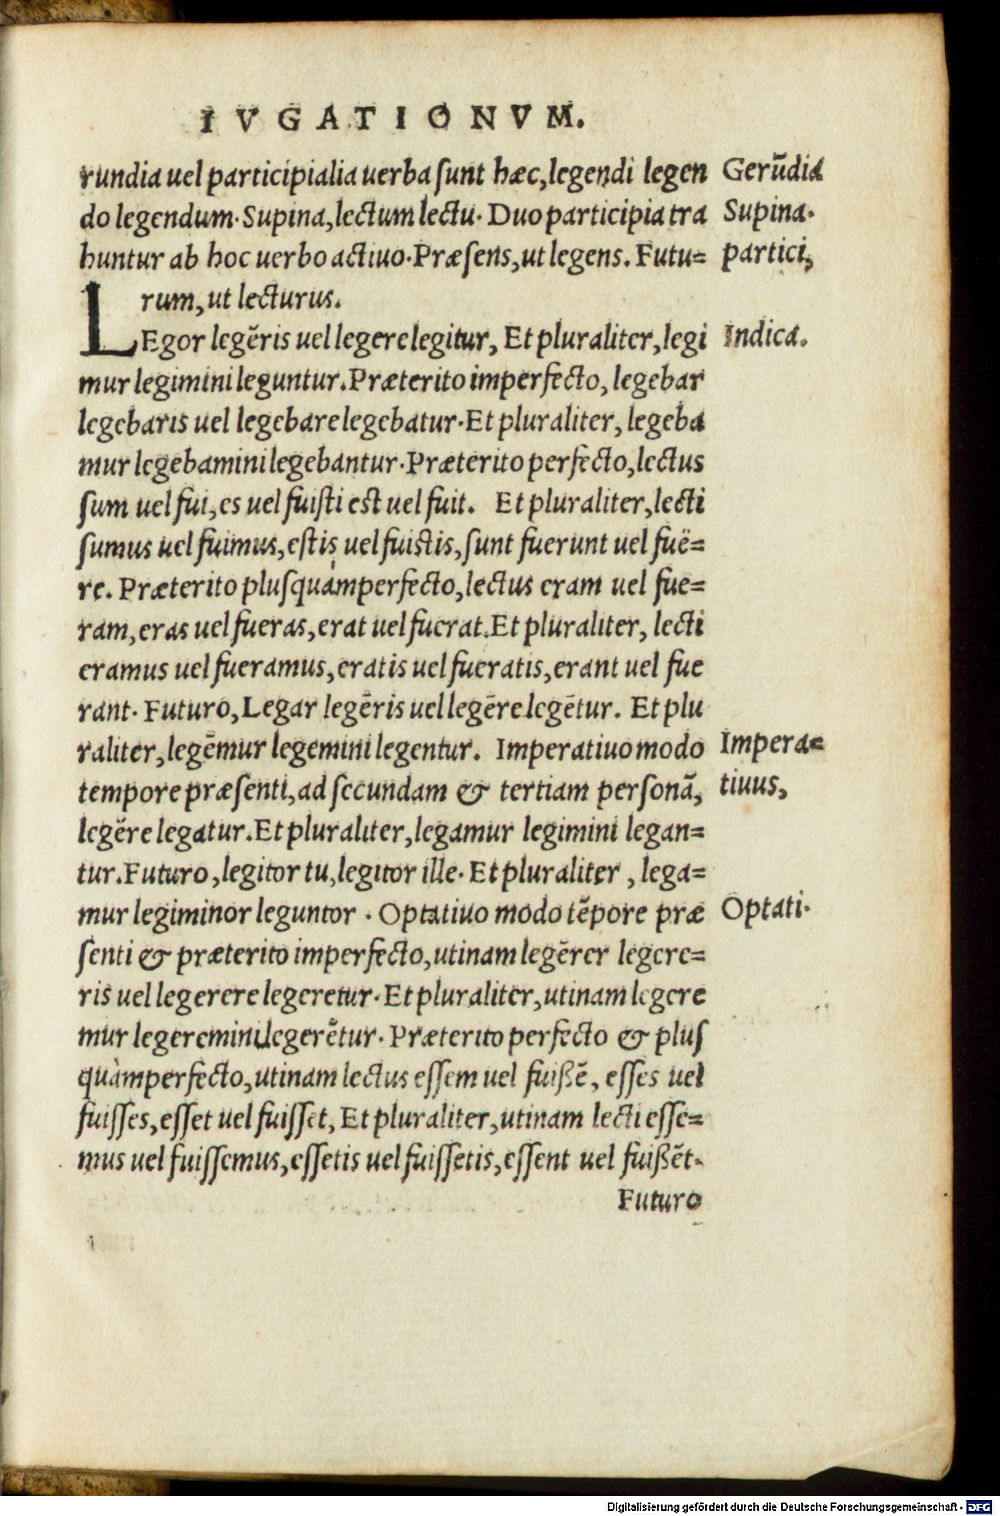 IVGATIONVM.
rundia uel participialia uerba sunt hæc, legendi legen Gerũdia
do legendum. Supina, lectum lectu. Duo participia tra Supina.
huntur ab hoc uerbo actiuo. Præsens, ut legens. Futu= partici,
rum, ut lecturus.
LEgor legēris uel legere legitur, Et pluraliter, legi Indica.
mur legimini leguntur. Præterito imperfecto, legebar
legebaris uel legebare legebatur. Et pluraliter, legeba
mur legebamini legebantur. Præterito perfecto, lectus
sum uel fui, es uel fuisti est uel fuit. Et pluraliter, lecti
sumus uel fuimus, estis uel fuistis, sunt fuerunt uel fuë=
re. Præterito plusquàmperfecto, lectus eram uel fue=
ram, eras uel fueras, erat uel fuerat. Et pluraliter, lecti
eramus uel fueramus, eratis uel fueratis, erant uel fue
rant. Futuro, Legar legēris uel legēre legētur. Et plu
raliter, legēmur legemini legentur. Imperatiuo modo Impera=
tempore præsenti, ad secundam & tertiam personã, tiuus,
legēre legatur. Et pluraliter, legamur legimini legan=
tur. Futuro, legitor tu, legitor ille. Et pluraliter, lega=
mur legiminor leguntor. Optatiuo modo tẽpore præ Optati.
senti & præterito imperfecto, utinam legērer legere=
ris uel legerere legeretur. Et pluraliter, utinam legere
mur legeremini legerẽtur. Præterito perfecto & plus
quàmperfecto, utinam lectus essem uel fuißẽ, esses uel
fuisses, esset uel fuisset, Et pluraliter, utinam lecti esse=
mus uel fuissemus, essetis uel fuissetis, essent uel fuißẽt.
Futuro
Digitalisierung gefördert durch die Deutsche Forschungsgemeinschaft - DFG